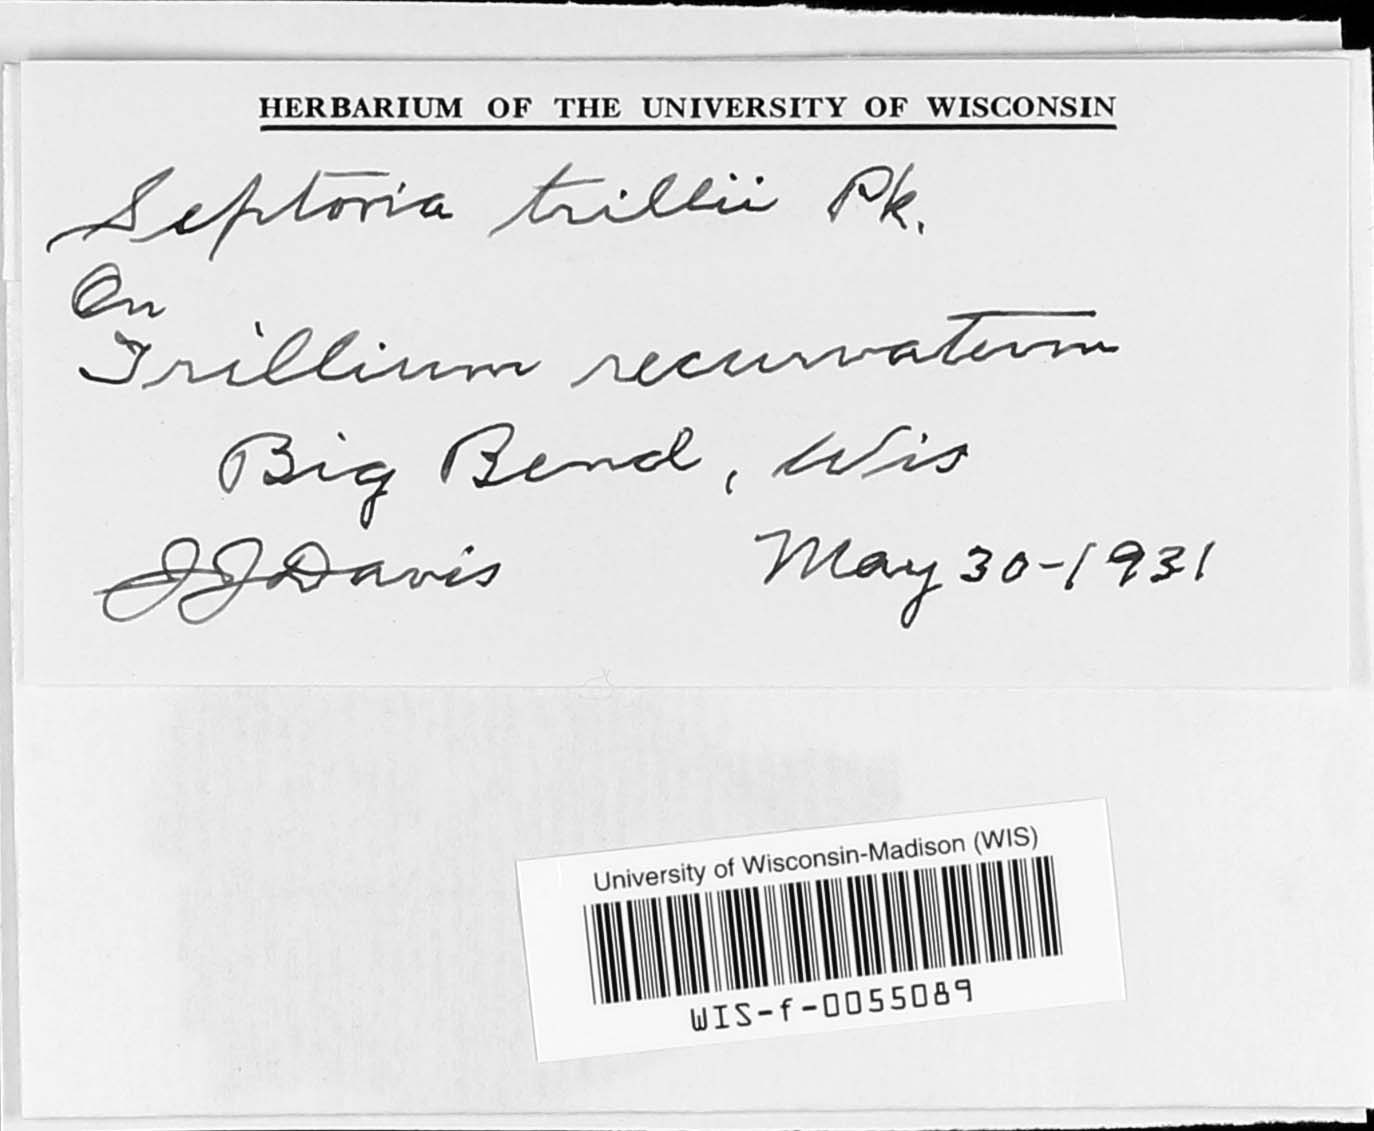 HERBARIUM OF THE UNIVERSITY OF WISCONSIN
Septoria trillii Pk.
On
Trillium recurvatum
Big Bend, Wis
JJDavis May 30-1931
University of Wisconsin-Madison (WIS)
WIS-f-0055089